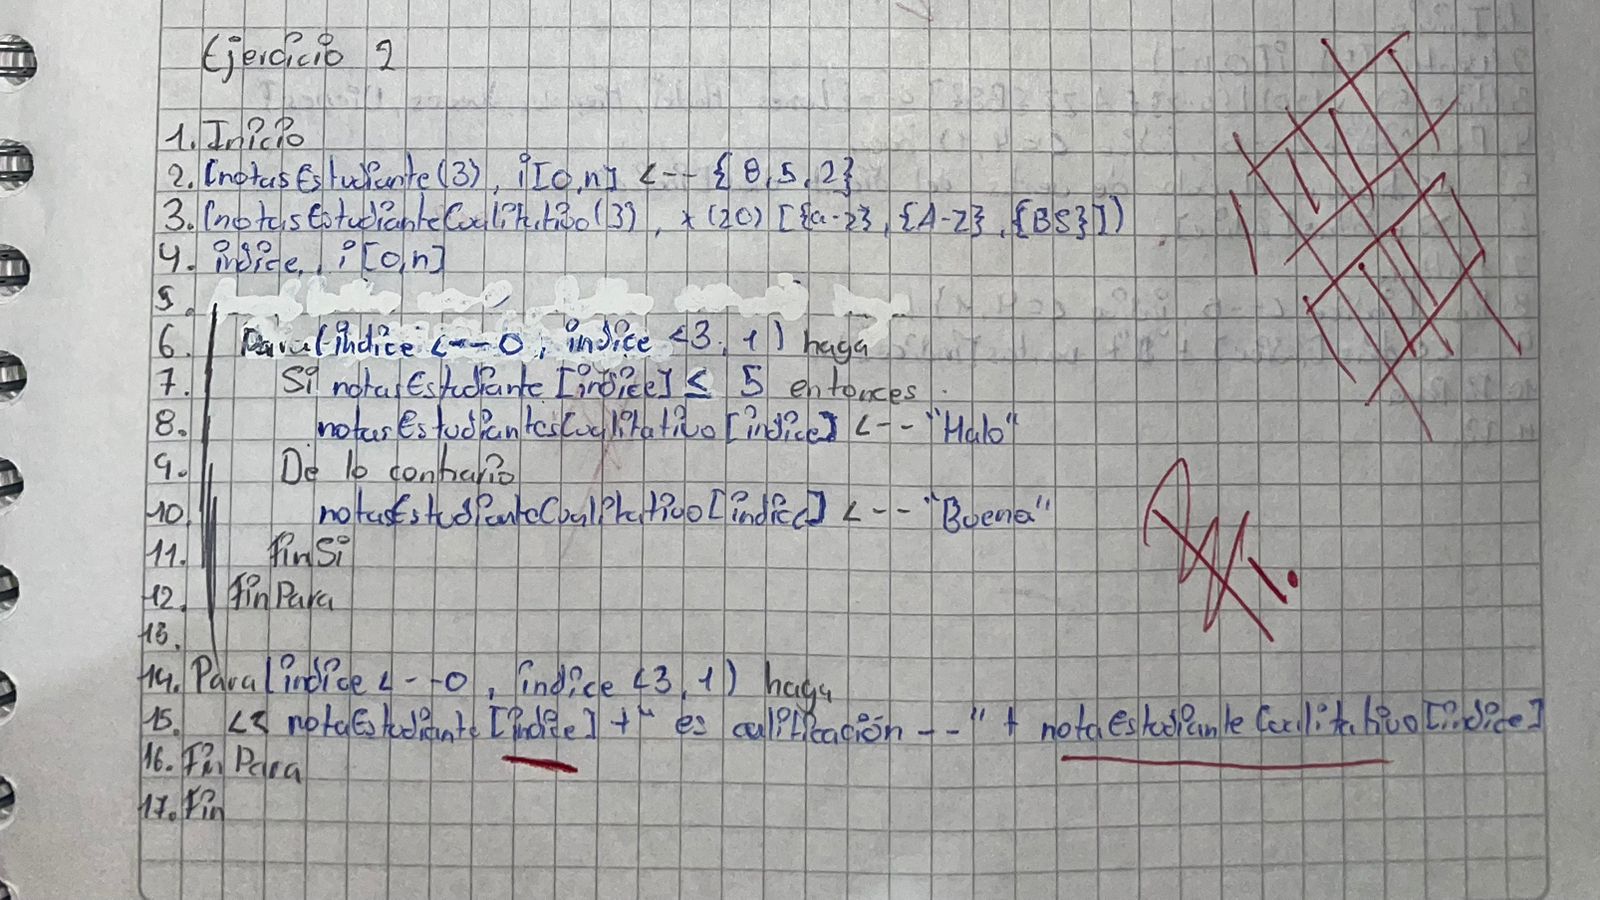 Ejercicio 2
1. Inicio
2. (notasEstudiante(3), i[0,n] <-- {8,5,2}
3. (notasEstudianteCualitativo(3), *(20) [{a-z},{A-Z},{BS}])
4. indice, i[0,n]
5.
6. Para(indice <--0, indice <3, 1) haga
7. Si notasEstudiante[indice] ≤ 5 entonces
8. notasEstudiantesCualitativo[indice] <-- "Malo"
9. De lo contrario
10. notasEstudianteCualitativo[indice] <-- "Buena"
11. FinSi
12. FinPara
13.
14. Para(indice <--0, indice <3, 1) haga
15. << notaEstudiante[indice] +" es calificación --" + notaEstudianteCualitativo[indice]
16. Fin Para
17. Fin